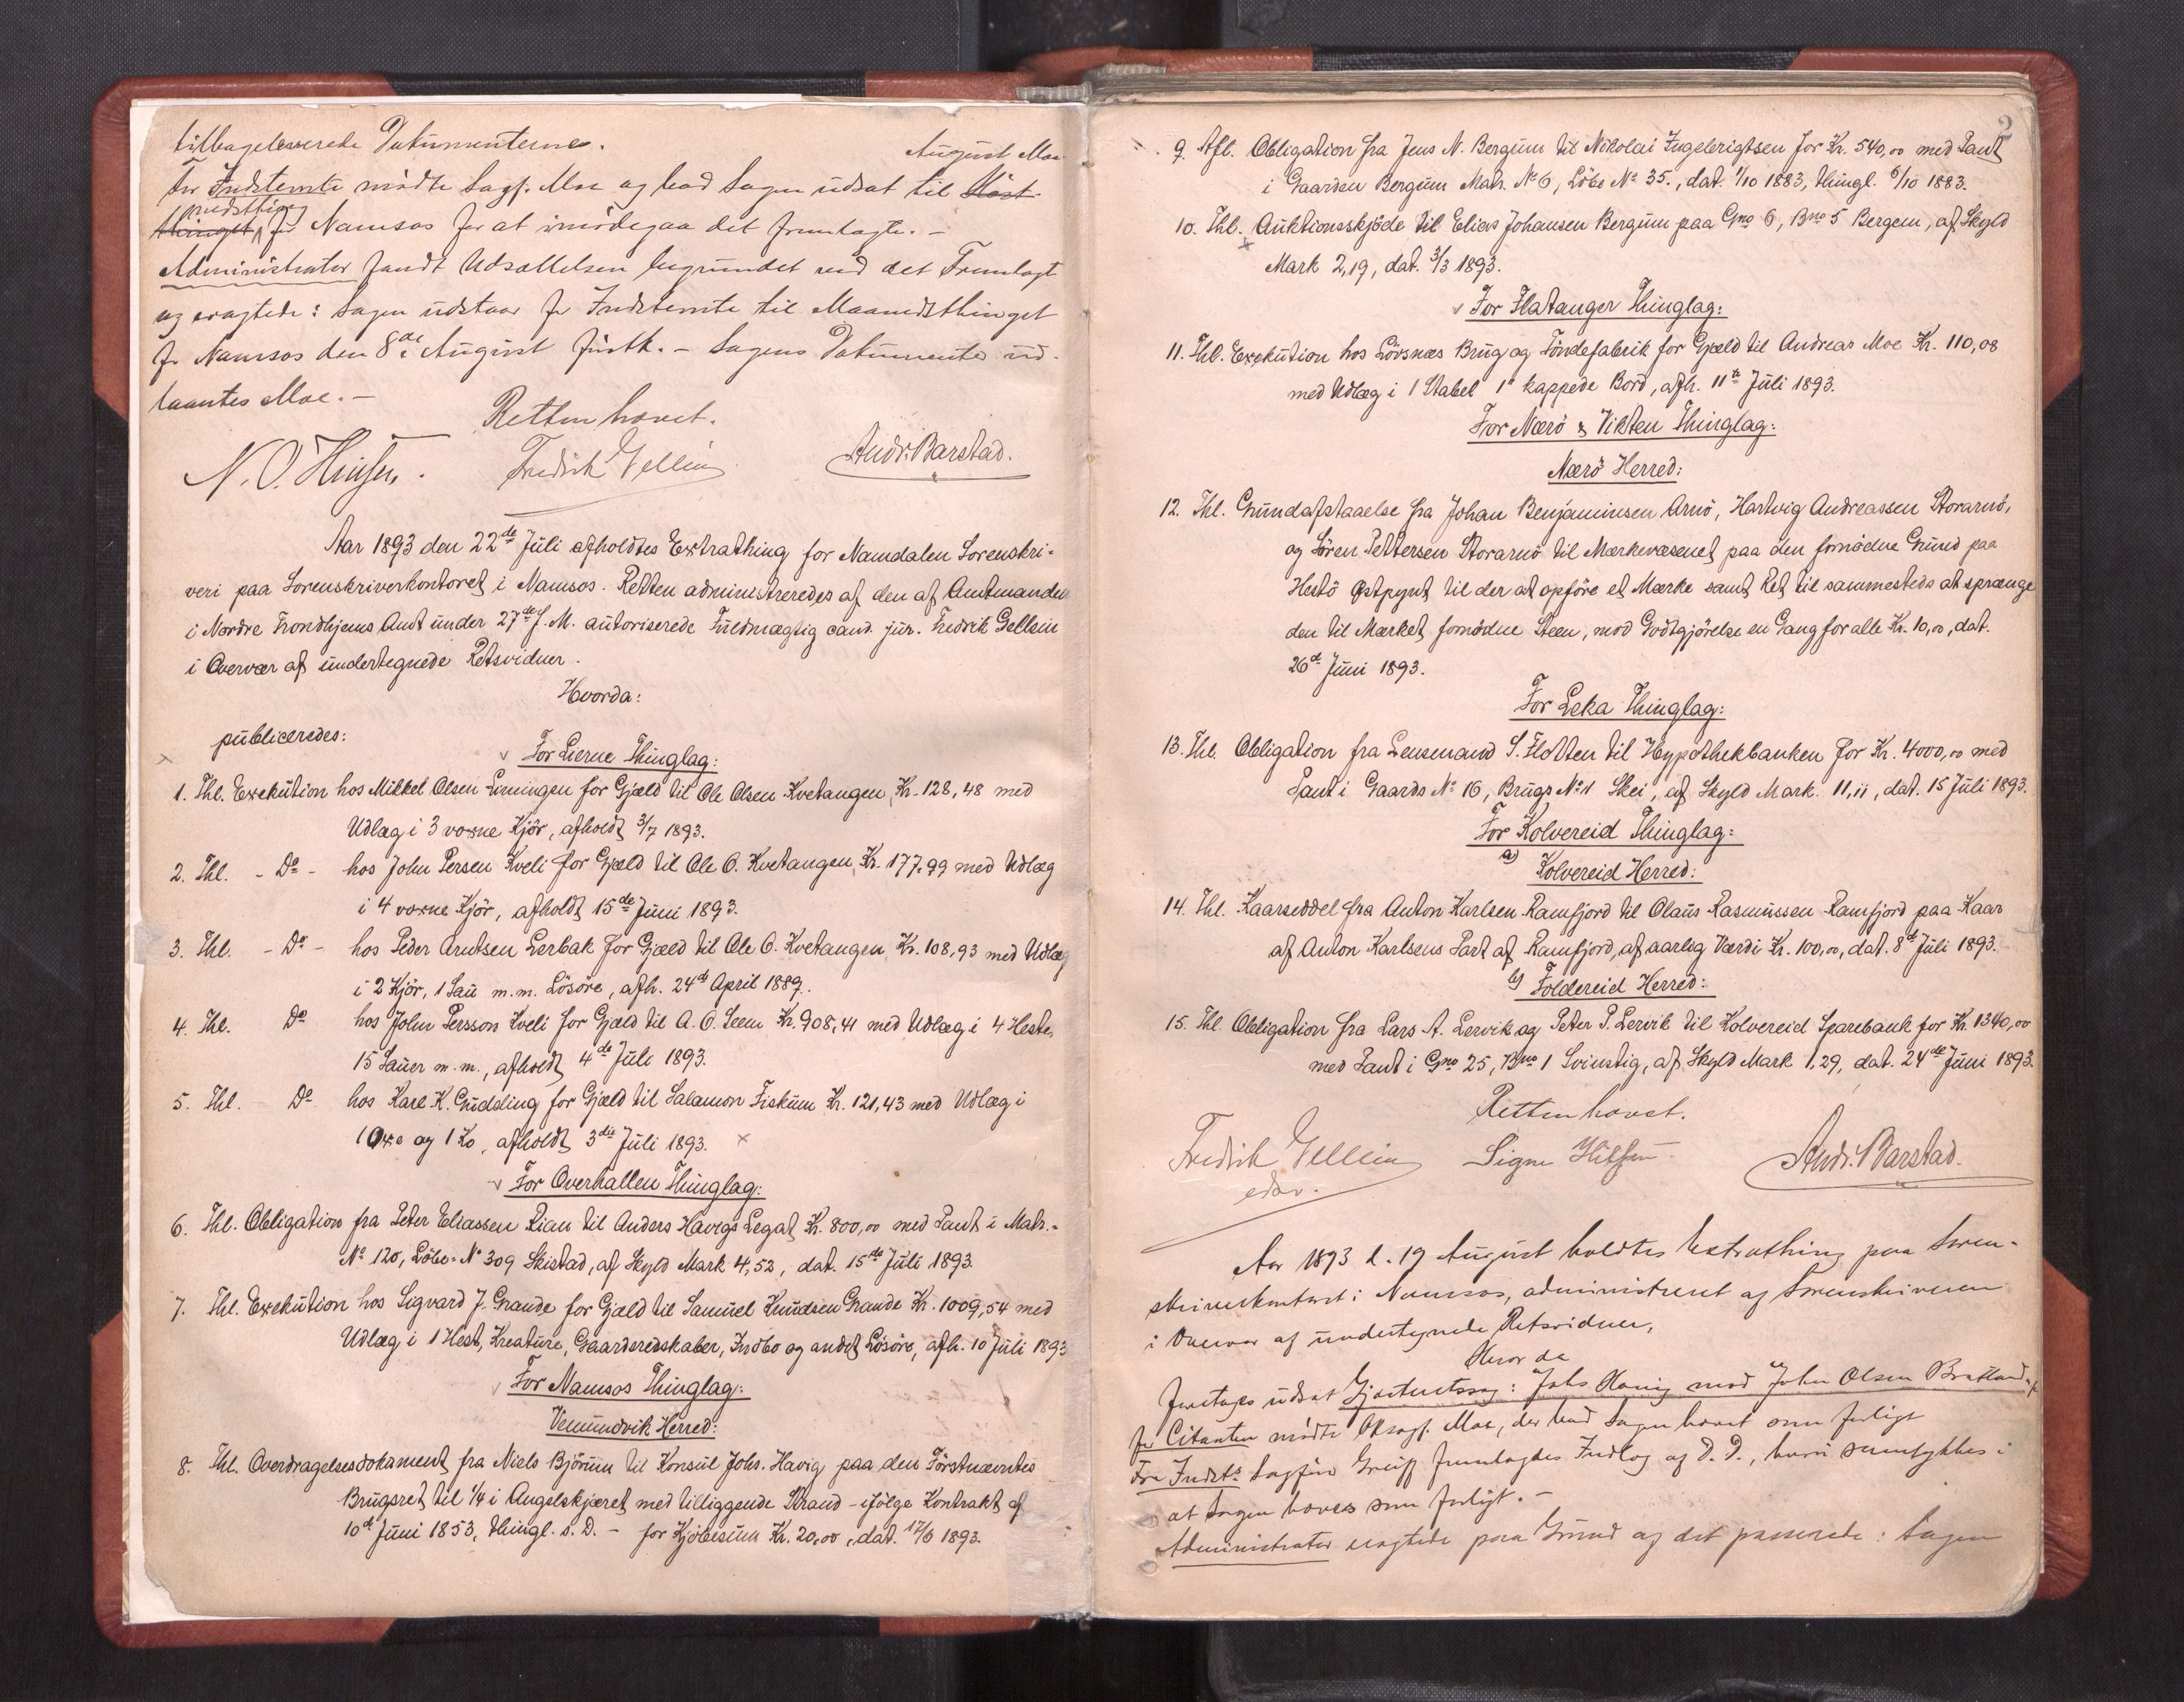 tilbageleverede Dokumenterne.
August Moe
For Indstevnte mødte Sagf. Moe og bad Sagen udsat til Høst-
thinget maedsthing for Namsos for at imødegaa det fremlagte. –
Administrator fandt Udsættelsen begrundet ved det Fremlagte
og eragtede: Sagen udstaar for Indstevnte til Maanedsthinget
for Namsos den 8de August førstk. – Sagens Dokumenter ud-
laantes Moe. –
Retten hævet.
N. O. Fredrik Gellein Andr. Barstad.
Aar 1893 den 22de Juli afholdtes Extrathing for Namdalen Sorenskri-
veri paa Sorenskriverkontoret i Namsos. Retten administreredes af den af Amtmanden
i Nordre Trondhjems Amt under 27de f. M. autoriserede Fuldmægtig cand. jur. Fredrik Gellein
i Overvær af undertegnede Retsvidner.
Hvorda:
publiceredes:
For Lierne Thinglag:
1. Thl. Exekution hos Mikkel Olsen Limingen for Gjæld til Ole Olsen Kvetangen, Kr. 128,48 med
Udlæg i 3 voxne Kjör, afholdt 3/7 1893.
2. Thl. – Do – hos John Persen Kveli for Gjæld til Ole O. Kvetangen, Kr. 177,99 med Udlæg
i 4 voxne Kjör, afholdt 15de Juni 1893.
3. Thl. – Do – hos Peder Arntsen Lerbak for Gjæld til Ole O. Kvetangen Kr. 108,93 med Udlæg
i 2 Kjör, 1 Sau m.m. Lösöre, afh. 24de April 1889.
4. Thl. Do hos John Persson Kveli for Gjæld til A. O. Seem Kr. 908,41 med Udlæg i 4 Heste,
15 Sauer m.m., afholdt 4de Juli 1893.
5. Thl. Do hos Karl K. Gudsling for Gjæld til Salamon Fiskum Kr. 121,43 med Udlæg i
1 Oxe og 1 Ko, afholdt 3die Juli 1893.
For Overhallen Thinglag:
6. Thl. Obligation fra Peter Eliassen Rian til Anders Havigs Legat Kr. 800,00 med Pant i Matr.-
No 120, Löbe-No 309 Skistad, af Skyld Mark 4,52, dat. 15de Juli 1893.
7. Thl. Exekution hos Sigvard J. Grande for Gjæld til Samuel Knudsen Grande Kr. 1009,54 med
Udlæg i 1 Hest, Kreature, Gaardsredskaber, Indbo og andet Lösöre, afh. 10 Juli 1893
For Namsos Thinglag:
Vemundvik Herred:
8. Thl. Overdragelsesdokument fra Niels Björum til Konsul Johs. Havig paa den Förstnævntes
Brugsret til 1/4 i Angelskjæret med tilliggende Strand – ifölge Kontrakt af
10de Juni 1853, thingl. s. D. – for Kjöbesum Kr. 20,00, dat. 17/6 1893.
2
9. Afl. Obligation fra Jens N. Bergum til Nikolai Ingebrigtsen for Kr. 540,00 med Pant
i Gaarden Bergum Matr. No 6, Löbe No 35., dat. 1/10 1883, thingl. 6/10 1883.
10. Thl. Auktionsskjöde til Elias Johansen Bergum paa Gno 6, Bno 5 Bergem, af Skyld
Mark 2,19, dat. 3/3 1893.
For Flatanger Thinglag:
11. Thl. Exekution hos Lövsnæs Brug og Töndefabrik for Gjæld til Andreas Moe Kr. 110,08
med Udlæg i 1 Stabel 1" kappede Bord, afh. 11te Juli 1893.
For Nærö & Vikten Thinglag:
Nærö Herred:
12. Thl. Grundafstaaelse fra Johan Benjaminsen Arnö, Hartvig Andreassen Storarnö,
og Sören Pettersen Storarnö til Mærkevæsenet paa den fornödne Grund paa
Hestö Östpynt til der at opföre et Mærke samt Ret til sammesteds at sprænge
den til Mærket fornödne Steen, mod Godtgjörelse en Gang for alle Kr. 10,00, dat.
26de Juni 1893.
For Leka Thinglag:
13. Thl. Obligation fra Lensmand S. Flotten til Hypothekbanken for Kr. 4000,00 med
Pant i Gaards No 16, Brugs No 1 Skei, af Skyld Mark 11,11, dat. 15 Juli 1893.
For Kolvereid Thinglag:
a) Kolvereid Herred:
14. Thl. Kaarseddel fra Anton Karlsen Ramfjord til Olaus Rasmussen Ramfjord paa Kaar
af Anton Karlsens Part af Ramfjord, af aarlig Værdi Kr. 100,00, dat. 8de Juli 1893.
b) Foldereid Herred:
15. Thl. Obligation fra Lars A. Lervik og Peter P. Lervik til Kolvereid Sparebank for Kr. 1340,00
med Pant i Gno 25, Bno 1 Svinstig, af Skyld Mark 1,29, dat. 24de Juni 1893.
Retten hævet.
Fredrik Gellein Signe Andr. Barstad.
edsv.
Aar 1893 d. 19 August holdtes Extrathing paa Soren-
skriverkontoret i Namsos, administreret af Sorenskriveren
i Overvær af undertegnede Retsvidner,
Hvor da
foretages udsat Gjæsteretssag: Johs Havig mod John Olsen Bratland
for Citanten mødte Oksagf. Moe, der bad Sagen hævet som forligt
For Indst. Sagfører Greiff fremlagdes Indlæg af D. D., hvori samtykkes i
at Sagen hæves som forligt. –
Administrator eragtede paa Grund af det passerede: Sagen